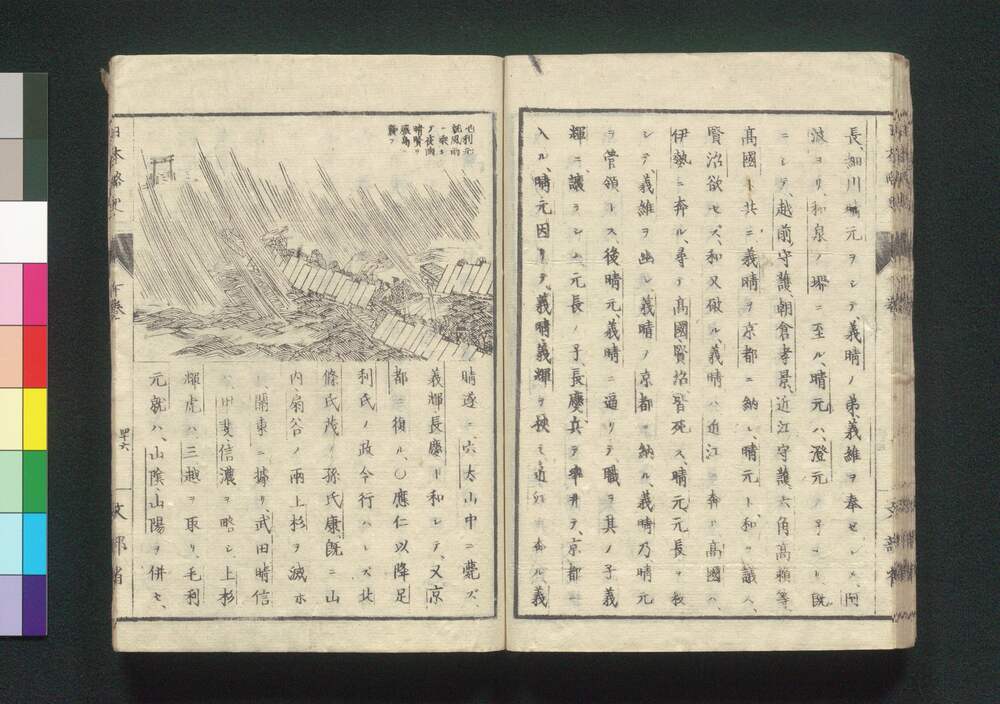 長、細川晴元ヲシテ、義晴ノ弟、義維ヲ奉セシメ、阿
波ヨリ、和泉ノ堺ニ至ル、晴元ハ、澄元ノ子ナリ、既
ニシテ、越前守護、朝倉孝景、近江守護、六角高頼等、
高國ト共ニ義晴ヲ京都ニ納レ、晴元ト和ヲ議ス、
賢治欲セズ、和又敗ル、義晴ハ、近江ニ奔リ、高國ハ、
伊勢ニ奔ル、尋テ高國、賢治皆死ス、晴元、元長ヲ殺
シテ、義維ヲ幽シ、義晴ノ京都ニ納ル、義晴乃晴元
ヲ管領トス、後晴元、義晴ニ逼リテ、職ヲ其ノ子義
輝ニ讓ラシム、元長ノ子、長慶、兵ヲ率井テ、京都ニ
入ル、晴元因リテ、義晴、義輝ヲ挾ミ、近江ニ奔ル、義
毛利元
就風雨
ニ乘シ
テ夜陶
晴賢ヲ
嚴島ニ
襲フ
晴遂ニ穴太山中ニ薨ズ、
義輝、長慶ト和シテ、又京
都ニ復ル、〇應仁以降、足
利氏ノ政令行ハレズ、北
條氏茂ノ孫氏康、既ニ山
内、扇谷ノ兩上杉ヲ滅ホ
シ、關東ニ據リ、武田晴信
ハ、甲斐信濃ヲ略シ、上杉
輝虎ハ、三越ヲ取リ、毛利
元就ハ、山陰、山陽ヲ併セ、
日本略史
四十六
文部省